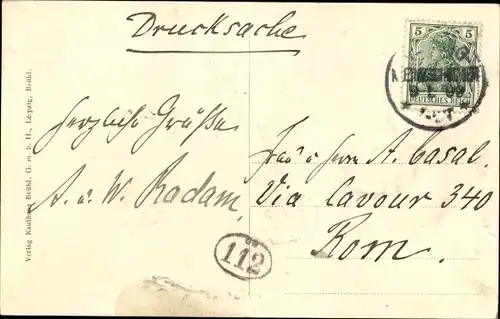 Drucksache
5 5
DEUTSCHES REICH
herzliche Grüße
A. u. W. Radam
Frau u Herrn A. Casal.
Via Cavour 340
Rom.
112
Verlag Kaufhaus Brühl, G. m. b. H., Leipzig, Brühl.